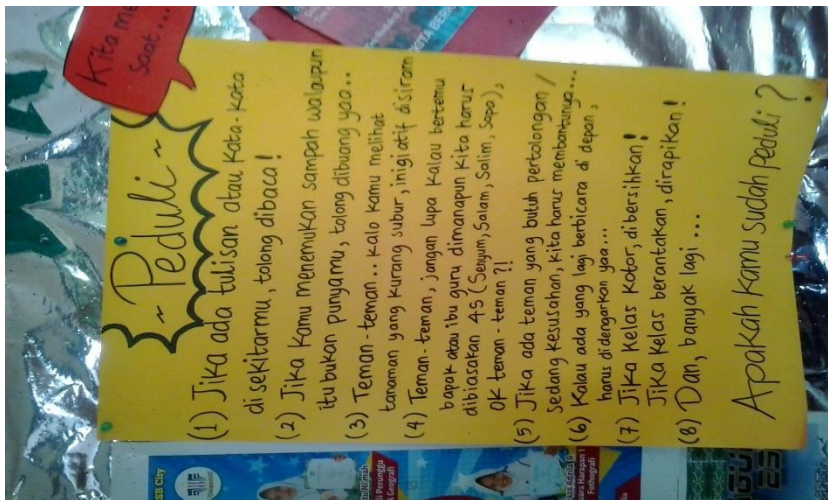 Kita me
Saat...
~ Peduli ~
(1) Jika ada tulisan atau kata-kata
di sekitarmu, tolong dibaca!
(2) Jika kamu menemukan sampah walaupun
itu bukan punyamu, tolong dibuang yaa..
(3) Teman-teman.. kalo kamu melihat
tanaman yang kurang subur, inigiatif disiram
(4) Teman-teman, jangan lupa kalau bertemu
bapak atau ibu guru dimanapun kita harus
dibiasakan 4S (Senyum, Salam, Salim, Sapa),
OK teman-teman?!
(5) Jika ada teman yang butuh pertolongan /
sedang kesusahan, kita harus membantunya...
(6) Kalau ada yang lagi berbicara di depan,
harus didengarkan yaa...
(7) Jika kelas kotor, dibersihkan!
Jika kelas berantakan, dirapikan!
(8) Dan, banyak lagi ...
Apakah kamu sudah peduli?
SSB City
Perunggu
Geografi
Harapan 1
Fotografi